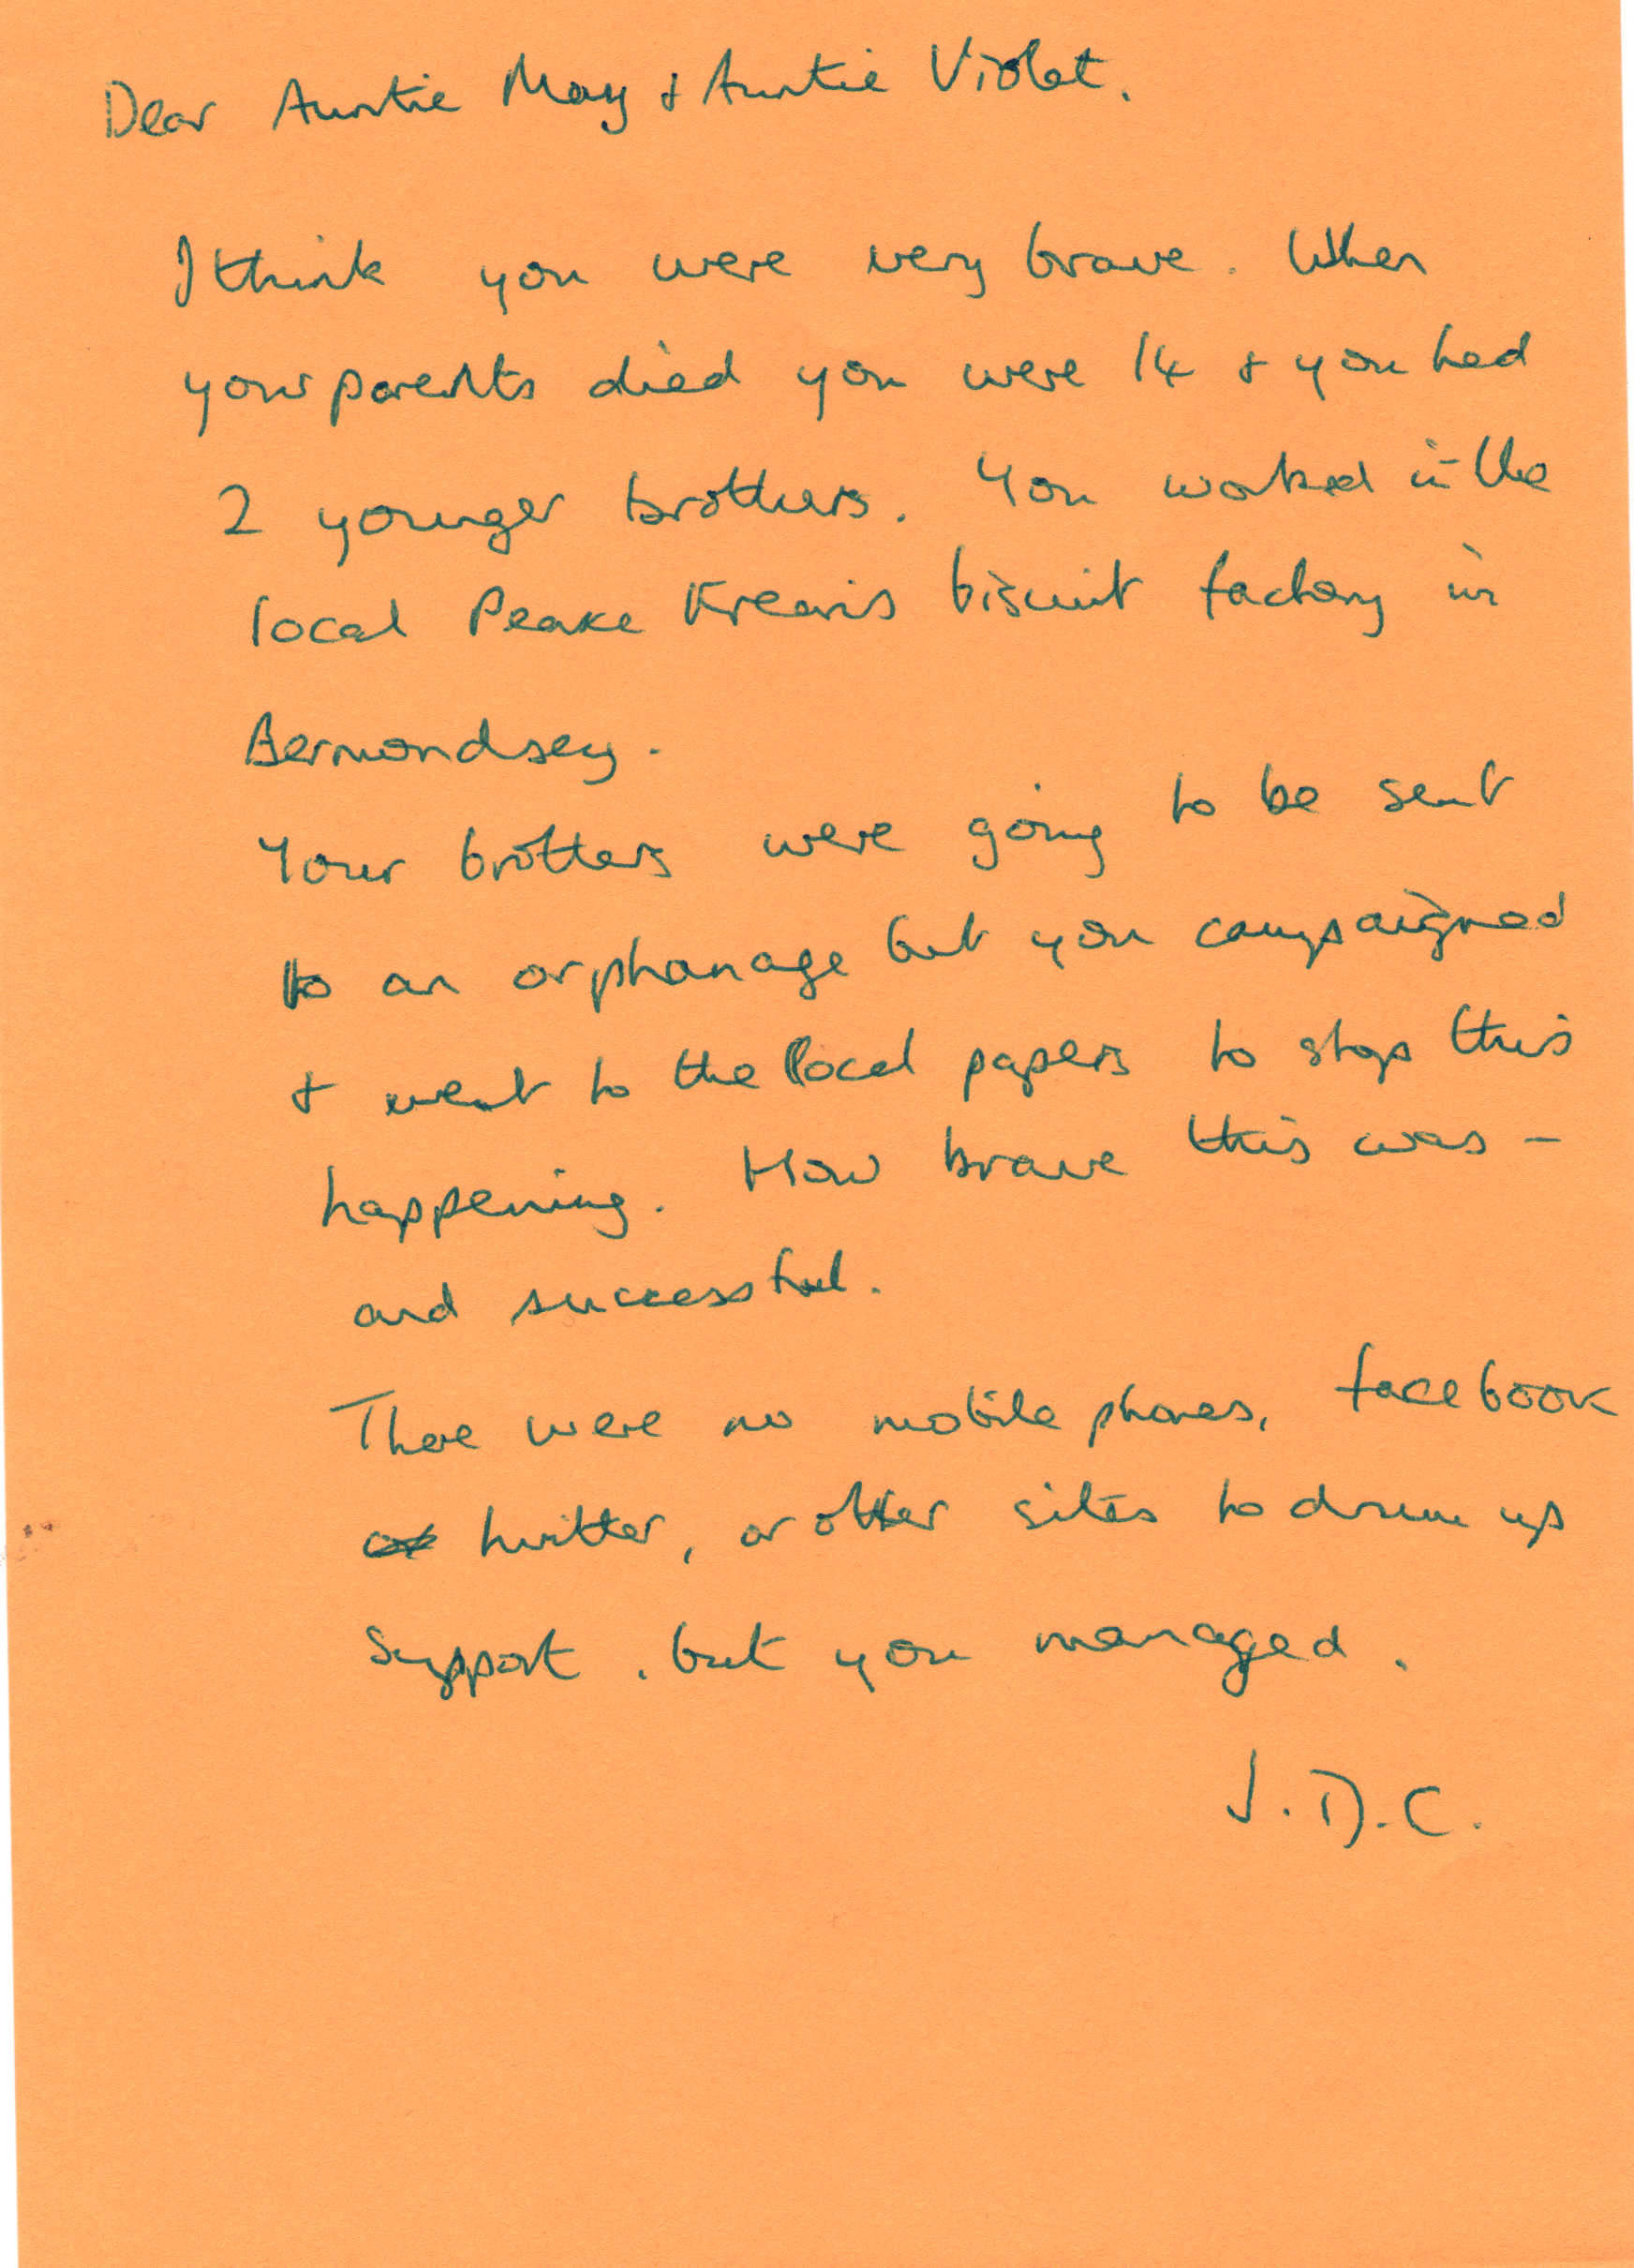 Dear Auntie May & Auntie Violet.
I think you were very brave. When
your parents died you were 14 & you had
2 younger brothers. You worked in the
local Peake Kreans biscuit factory in
Bermondsey.
Your brothers were going to be sent
to an orphanage but you campaigned
& went to the local papers to stop this
happening. How brave this was -
and successful.
There were no mobile phones, facebook
twitter, or other sites to drum up
support. but you managed.
J.D.C.